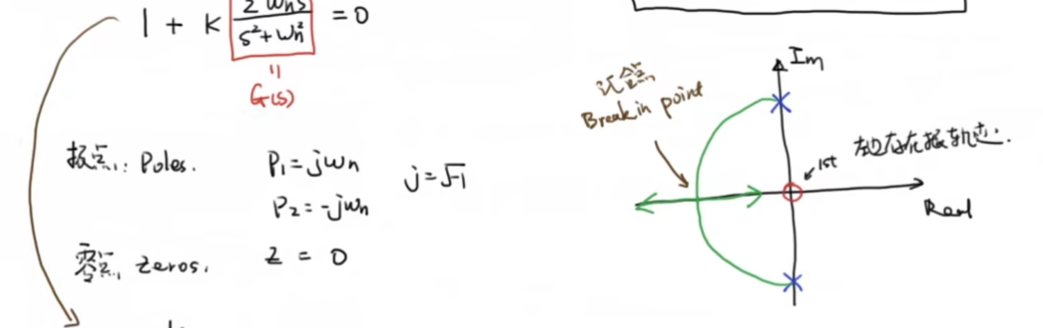 1 + K 2ωns/(s²+ωn²) = 0
"
G(s)
极点: Poles. P1=jωn j=√-1
P2=-jωn
零点, zeros. Z = 0
Im
汇合点
Break in point
1st
左边存在根轨迹.
Real